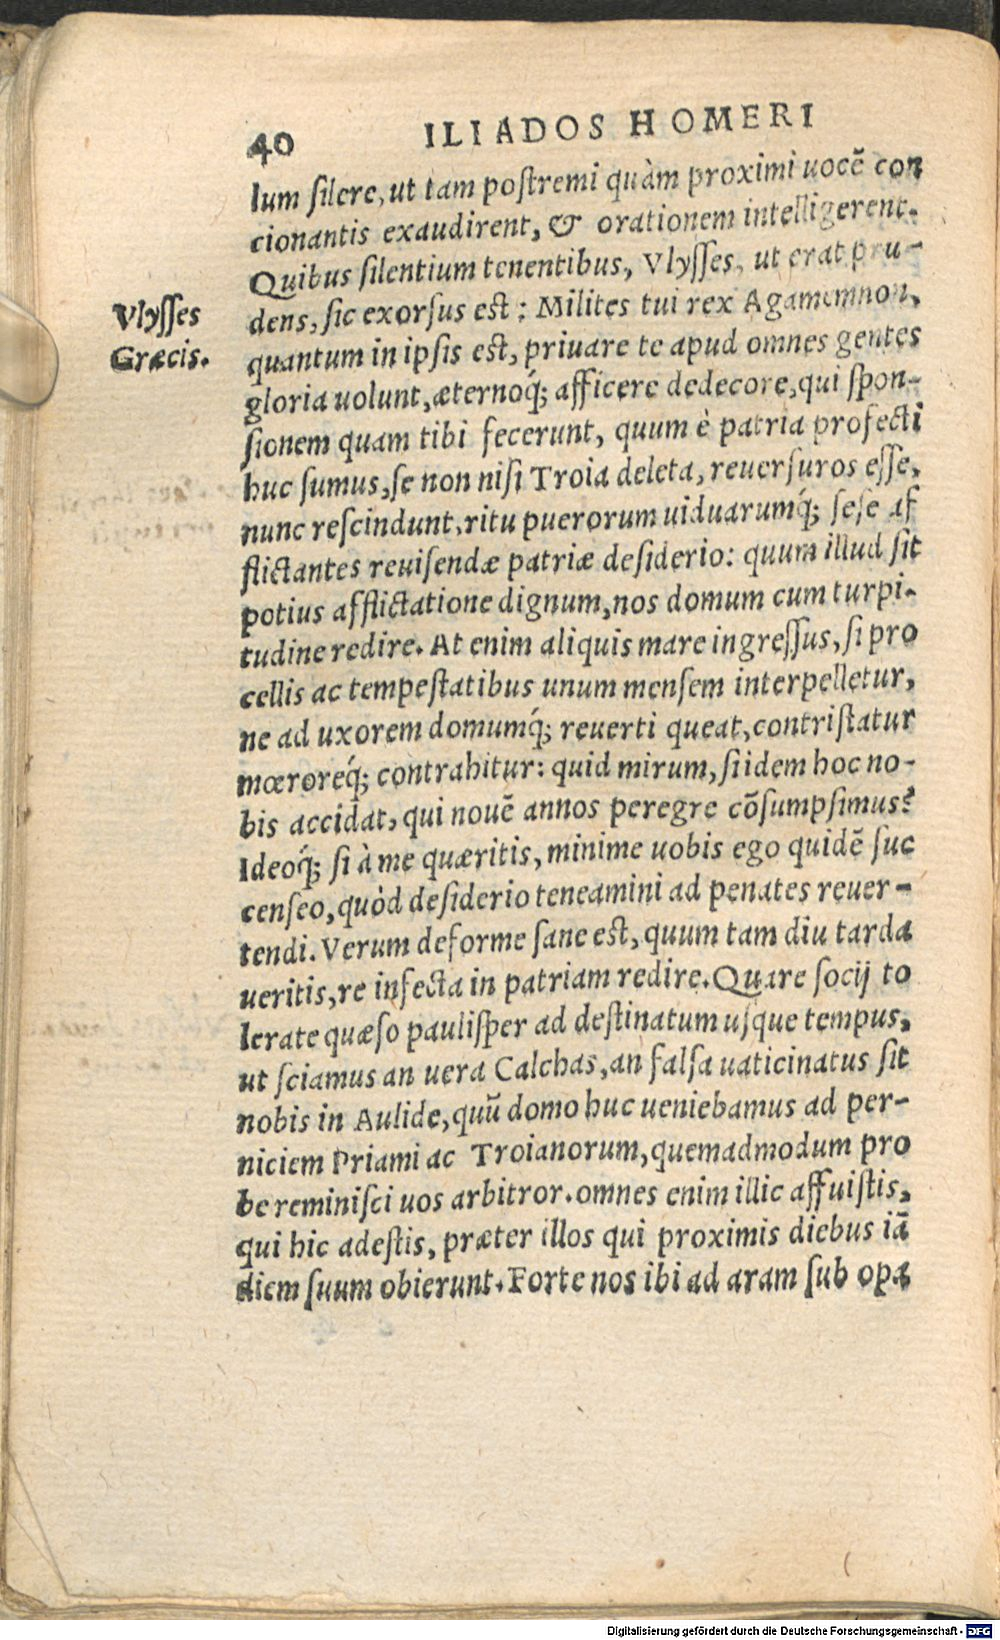 40 ILIADOS HOMERI
lum silere, ut tam postremi quàm proximi uocē con
cionantis exaudirent, & orationem intelligerent.
Quibus silentium tenentibus, Vlysses, ut erat pru-
Vlysses
Græcis.
dens, sic exorsus est: Milites tui rex Agamemnon,
quantum in ipsis est, priuare te apud omnes gentes
gloria uolunt, æternoq́; afficere dedecore, qui spon-
sionem quam tibi fecerunt, quum è patria profecti
huc sumus, se non nisi Troia deleta, reuersuros esse,
nunc rescindunt, ritu puerorum uiduarumq́; sese af
flictantes reuisendæ patriæ desiderio: quum illud sit
potius afflictatione dignum, nos domum cum turpi-
tudine redire. At enim aliquis mare ingressus, si pro
cellis ac tempestatibus unum mensem interpelletur,
ne ad uxorem domumq́; reuerti queat, contristatur
mœroreq́; contrahitur: quid mirum, si idem hoc no-
bis accidat, qui nouē annos peregre cōsumpsimus?
Ideoq́; si à me quæritis, minime uobis ego quidē suc
censeo, quòd desiderio teneamini ad penates reuer-
tendi. Verum deforme sane est, quum tam diu tarda
ueritis, re infecta in patriam redire. Quare socij to
lerate quæso paulisper ad destinatum usque tempus,
ut sciamus an uera Calchas, an falsa uaticinatus sit
nobis in Aulide, quū domo huc ueniebamus ad per-
niciem Priami ac Troianorum, quemadmodum pro
be reminisci uos arbitror. omnes enim illic affuistis,
qui hic adestis, præter illos qui proximis diebus iā
diem suum obierunt. Forte nos ibi ad aram sub opa
Digitalisierung gefördert durch die Deutsche Forschungsgemeinschaft - DFG